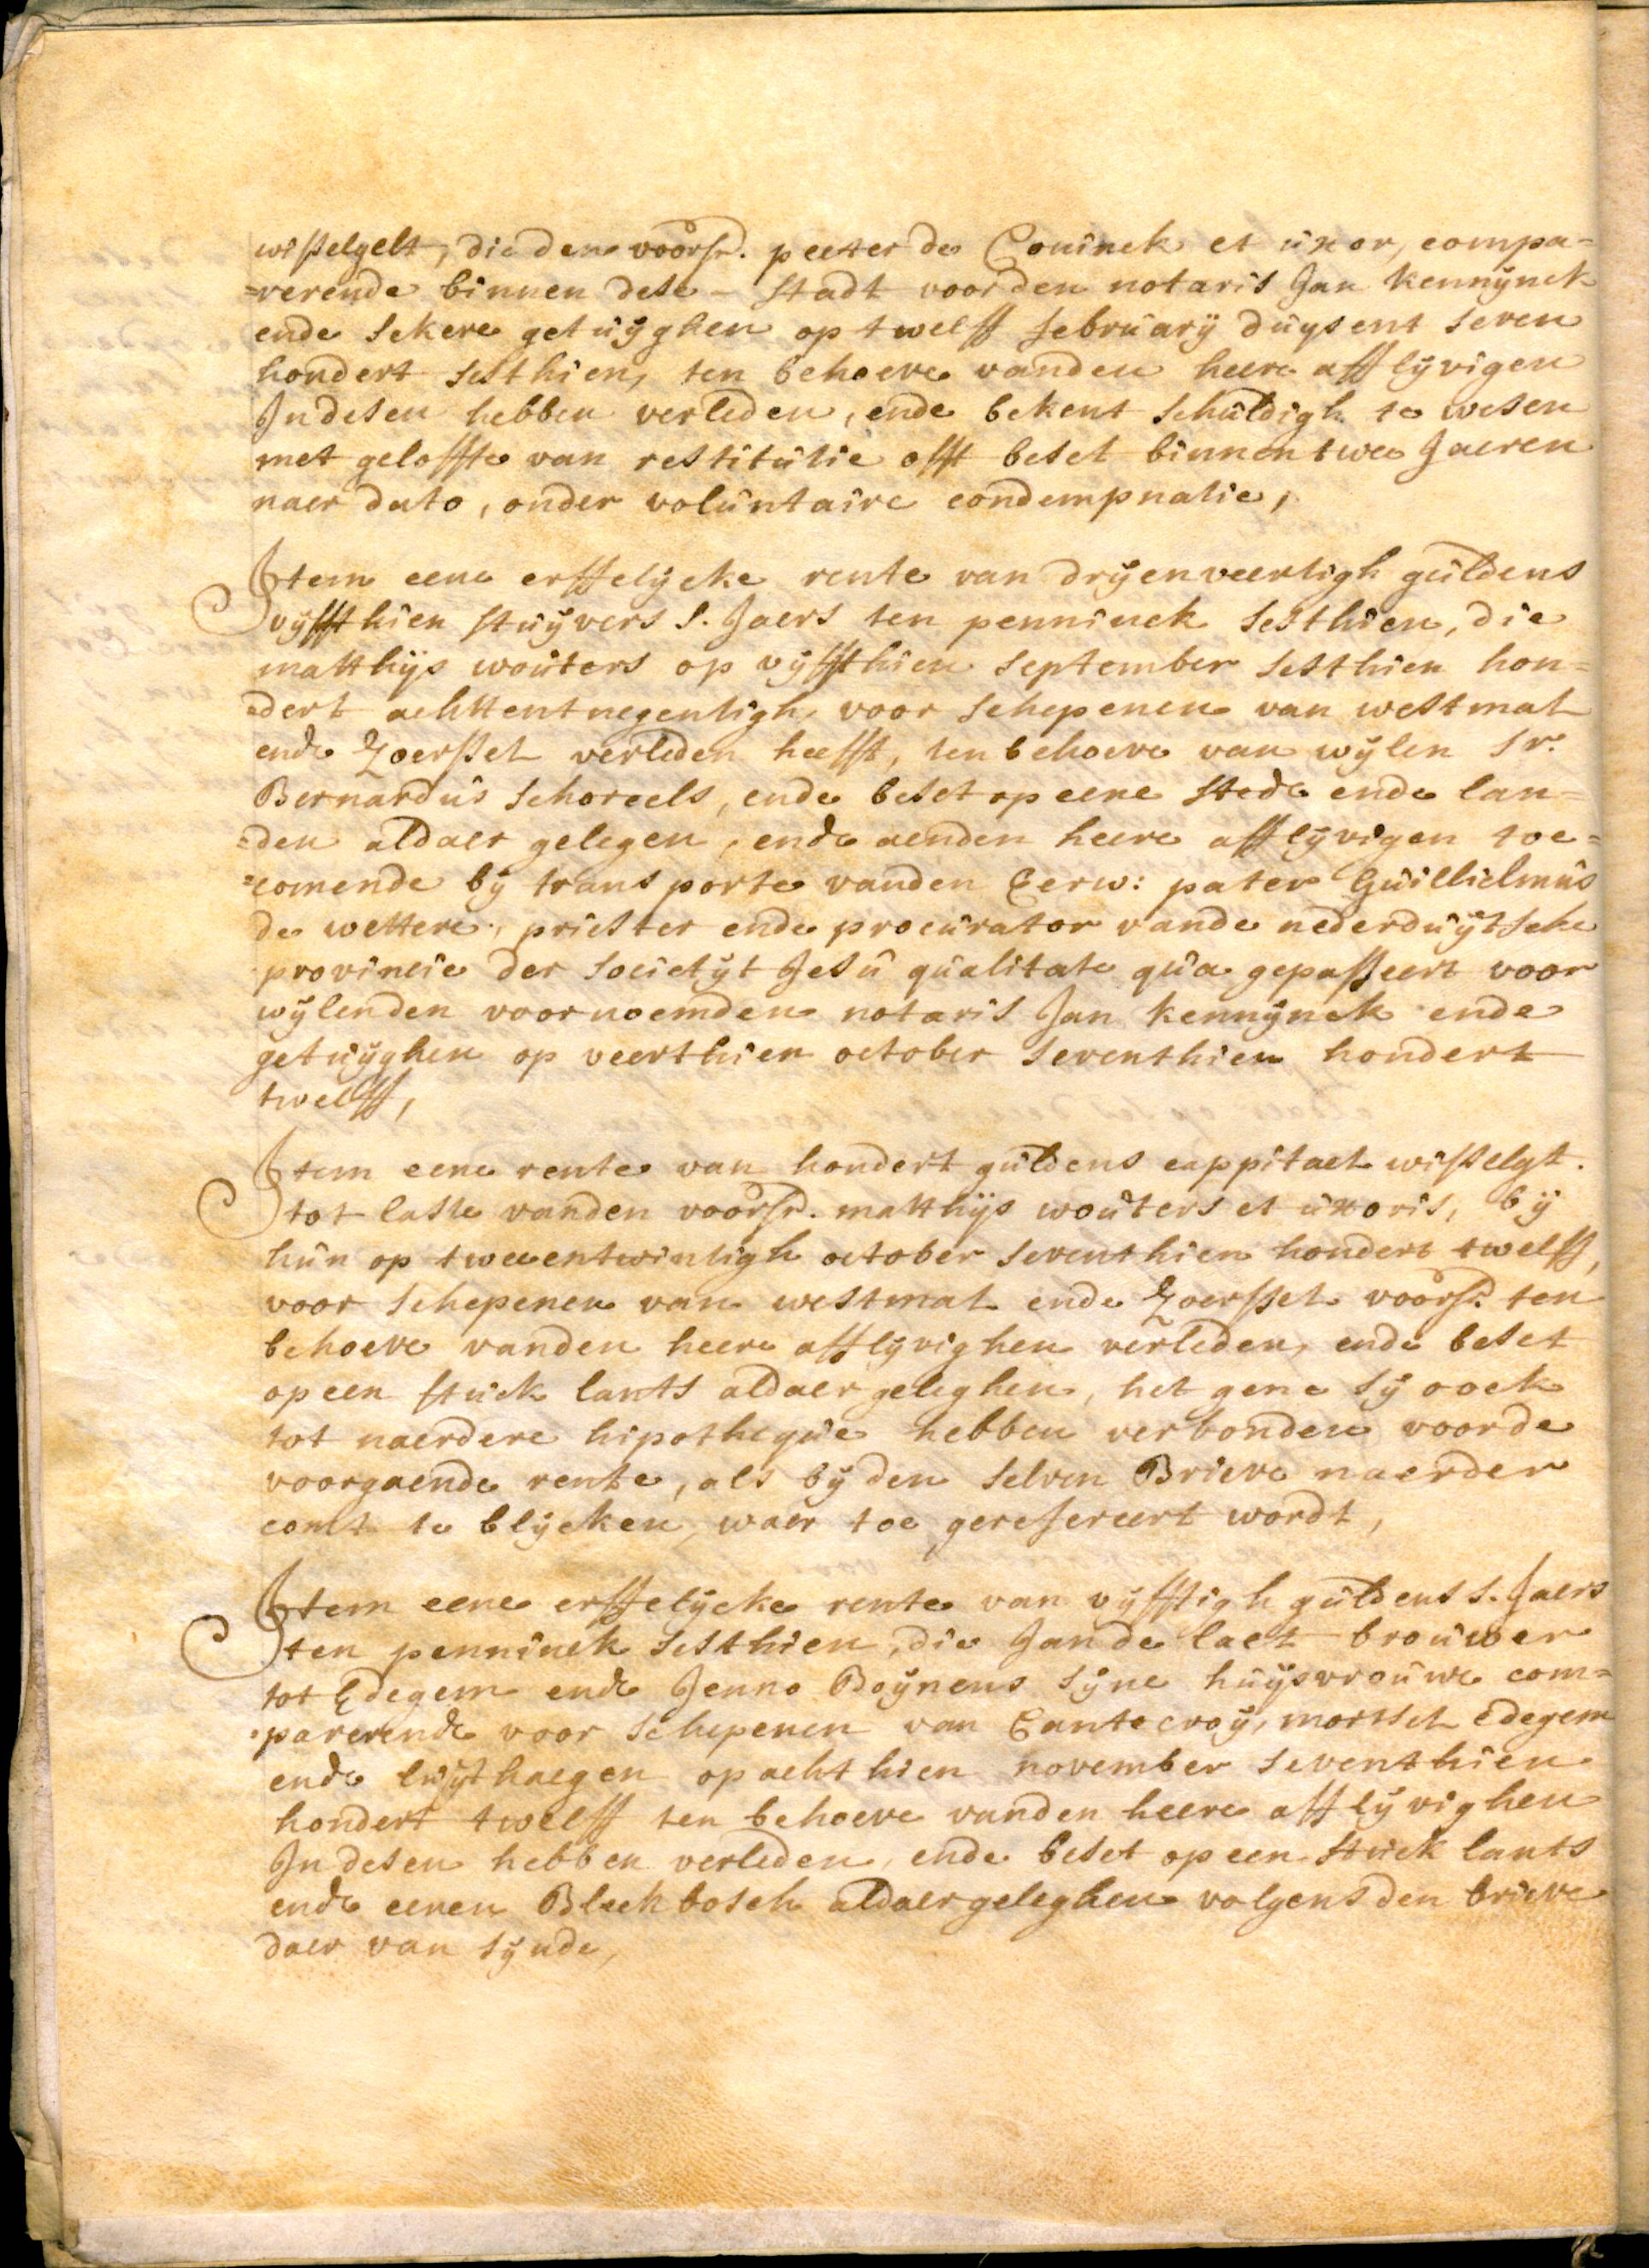 wisselgelt, die den voorsr. peeter de Coninck et uxor, compa=
=rerende binnen dese - stadt voor den notaris Jan Kennÿnck
ende sekere getuÿghen op twelff februarÿ duysent seven
hondert sesthien, ten behoeve vanden heere afflÿvigen
In desen hebben verleden, ende bekent schuldigh te wesen
met geloffte van restitutie offt beset binnen twee Jaeren
naer dato, onder voluntaire condempnatie,
Item eene erffelÿcke rente van drÿenveertigh guldens
vÿffthien stuÿvers s. Jaers ten penninck sesthien, die
matthÿs wouters op vÿffthien september sesthien hon=
=dert achttentnegentigh, voor schepenen van westmal
ende Zoersel verleden heefft, ten behoeve van wÿlen Sr.
Bernardus Schoreels, ende beset op eene stede ende lan=
=den aldaer gelegen, ende aenden heere afflÿvigen toe=
=comende bÿ transporte vanden Eerw: pater Guillielmus
de wettere, priester ende procurator vande nederduÿtsche
provincie der societÿt Jesu qualitate qua gepasseert voor
wÿlenden voornoemden notaris Jan Kennÿnck ende
getuÿghen op veerthien october seventhien hondert
twelff,
Item eene rente van hondert guldens cappitael wisselgt.
tot laste vanden voorsr. matthÿs wouters et uxoris, bÿ
hun op tweentwintigh october seventhien hondert twelff,
voor schepenen van westmal ende Zoersel voorsr. ten
behoeve vanden heere afflÿvighen verleden, ende beset
op een stuck lants aldaer geleghen, het gene sÿ oock
tot naerdere hipotheque hebben verbonden voor de
voorgaende rente, als bÿ den selven Brieve naerder
comt te blÿcken, waer toe gerefereert wordt,
Item eene erffelÿcke rente van vÿfftigh guldens s. Jaers
ten penninck sesthien, die Jan de laet brouwer
tot Edegem ende Jenno Boÿnens sÿne huÿsvrouwe com=
=parerende voor schepenen van Cantecroÿ, mortsel Edegem
ende luÿthaegen op achthien november seventhien
hondert twelff ten behoeve vanden heere afflÿvighen
In desen hebben verleden, ende beset op een stuck lants
ende eenen Bleckbosch aldaer geleghen volgens den brieve
daer van sÿnde,